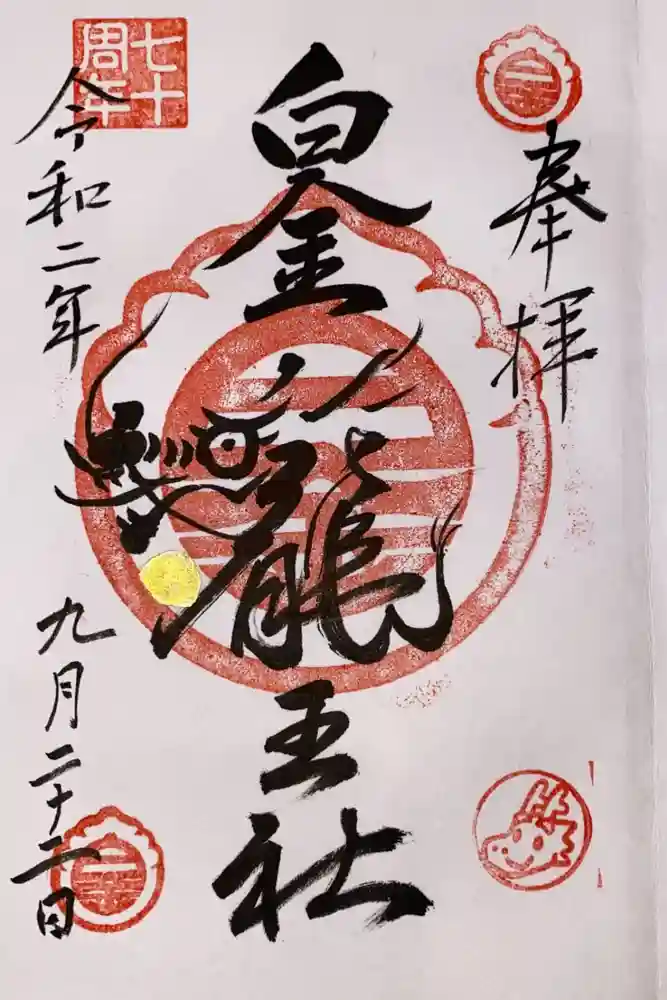 奉拝
白金龍王社
七十
周年
令和二年
九月二十二日